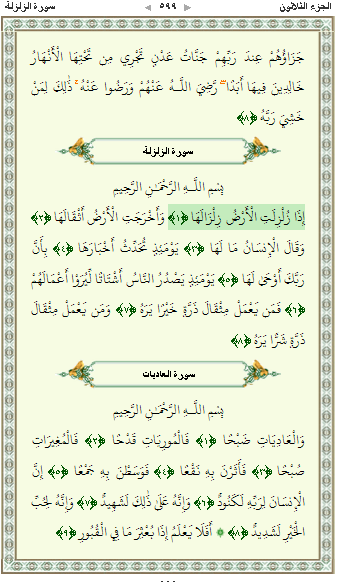 سورة الزلزلة ◄ ٥٩٩ ► الجزء الثلاثون
جَزَاؤُهُمْ عِندَ رَبِّهِمْ جَنَّاتُ عَدْنٍ تَجْرِي مِن تَحْتِهَا الْأَنْهَارُ
خَالِدِينَ فِيهَا أَبَدًا ۖ رَّضِيَ اللَّـهُ عَنْهُمْ وَرَضُوا عَنْهُ ۚ ذَٰلِكَ لِمَنْ
خَشِيَ رَبَّهُ ﴿٨﴾
سورة الزلزلة
بِسْمِ اللَّـهِ الرَّحْمَـٰنِ الرَّحِيمِ
إِذَا زُلْزِلَتِ الْأَرْضُ زِلْزَالَهَا ﴿١﴾ وَأَخْرَجَتِ الْأَرْضُ أَثْقَالَهَا ﴿٢﴾
وَقَالَ الْإِنسَانُ مَا لَهَا ﴿٣﴾ يَوْمَئِذٍ تُحَدِّثُ أَخْبَارَهَا ﴿٤﴾ بِأَنَّ
رَبَّكَ أَوْحَىٰ لَهَا ﴿٥﴾ يَوْمَئِذٍ يَصْدُرُ النَّاسُ أَشْتَاتًا لِّيُرَوْا أَعْمَالَهُمْ
﴿٦﴾ فَمَن يَعْمَلْ مِثْقَالَ ذَرَّةٍ خَيْرًا يَرَهُ ﴿٧﴾ وَمَن يَعْمَلْ مِثْقَالَ
ذَرَّةٍ شَرًّا يَرَهُ ﴿٨﴾
سورة العاديات
بِسْمِ اللَّـهِ الرَّحْمَـٰنِ الرَّحِيمِ
وَالْعَادِيَاتِ ضَبْحًا ﴿١﴾ فَالْمُورِيَاتِ قَدْحًا ﴿٢﴾ فَالْمُغِيرَاتِ
صُبْحًا ﴿٣﴾ فَأَثَرْنَ بِهِ نَقْعًا ﴿٤﴾ فَوَسَطْنَ بِهِ جَمْعًا ﴿٥﴾ إِنَّ
الْإِنسَانَ لِرَبِّهِ لَكَنُودٌ ﴿٦﴾ وَإِنَّهُ عَلَىٰ ذَٰلِكَ لَشَهِيدٌ ﴿٧﴾ وَإِنَّهُ لِحُبِّ
الْخَيْرِ لَشَدِيدٌ ﴿٨﴾ ۞ أَفَلَا يَعْلَمُ إِذَا بُعْثِرَ مَا فِي الْقُبُورِ ﴿٩﴾